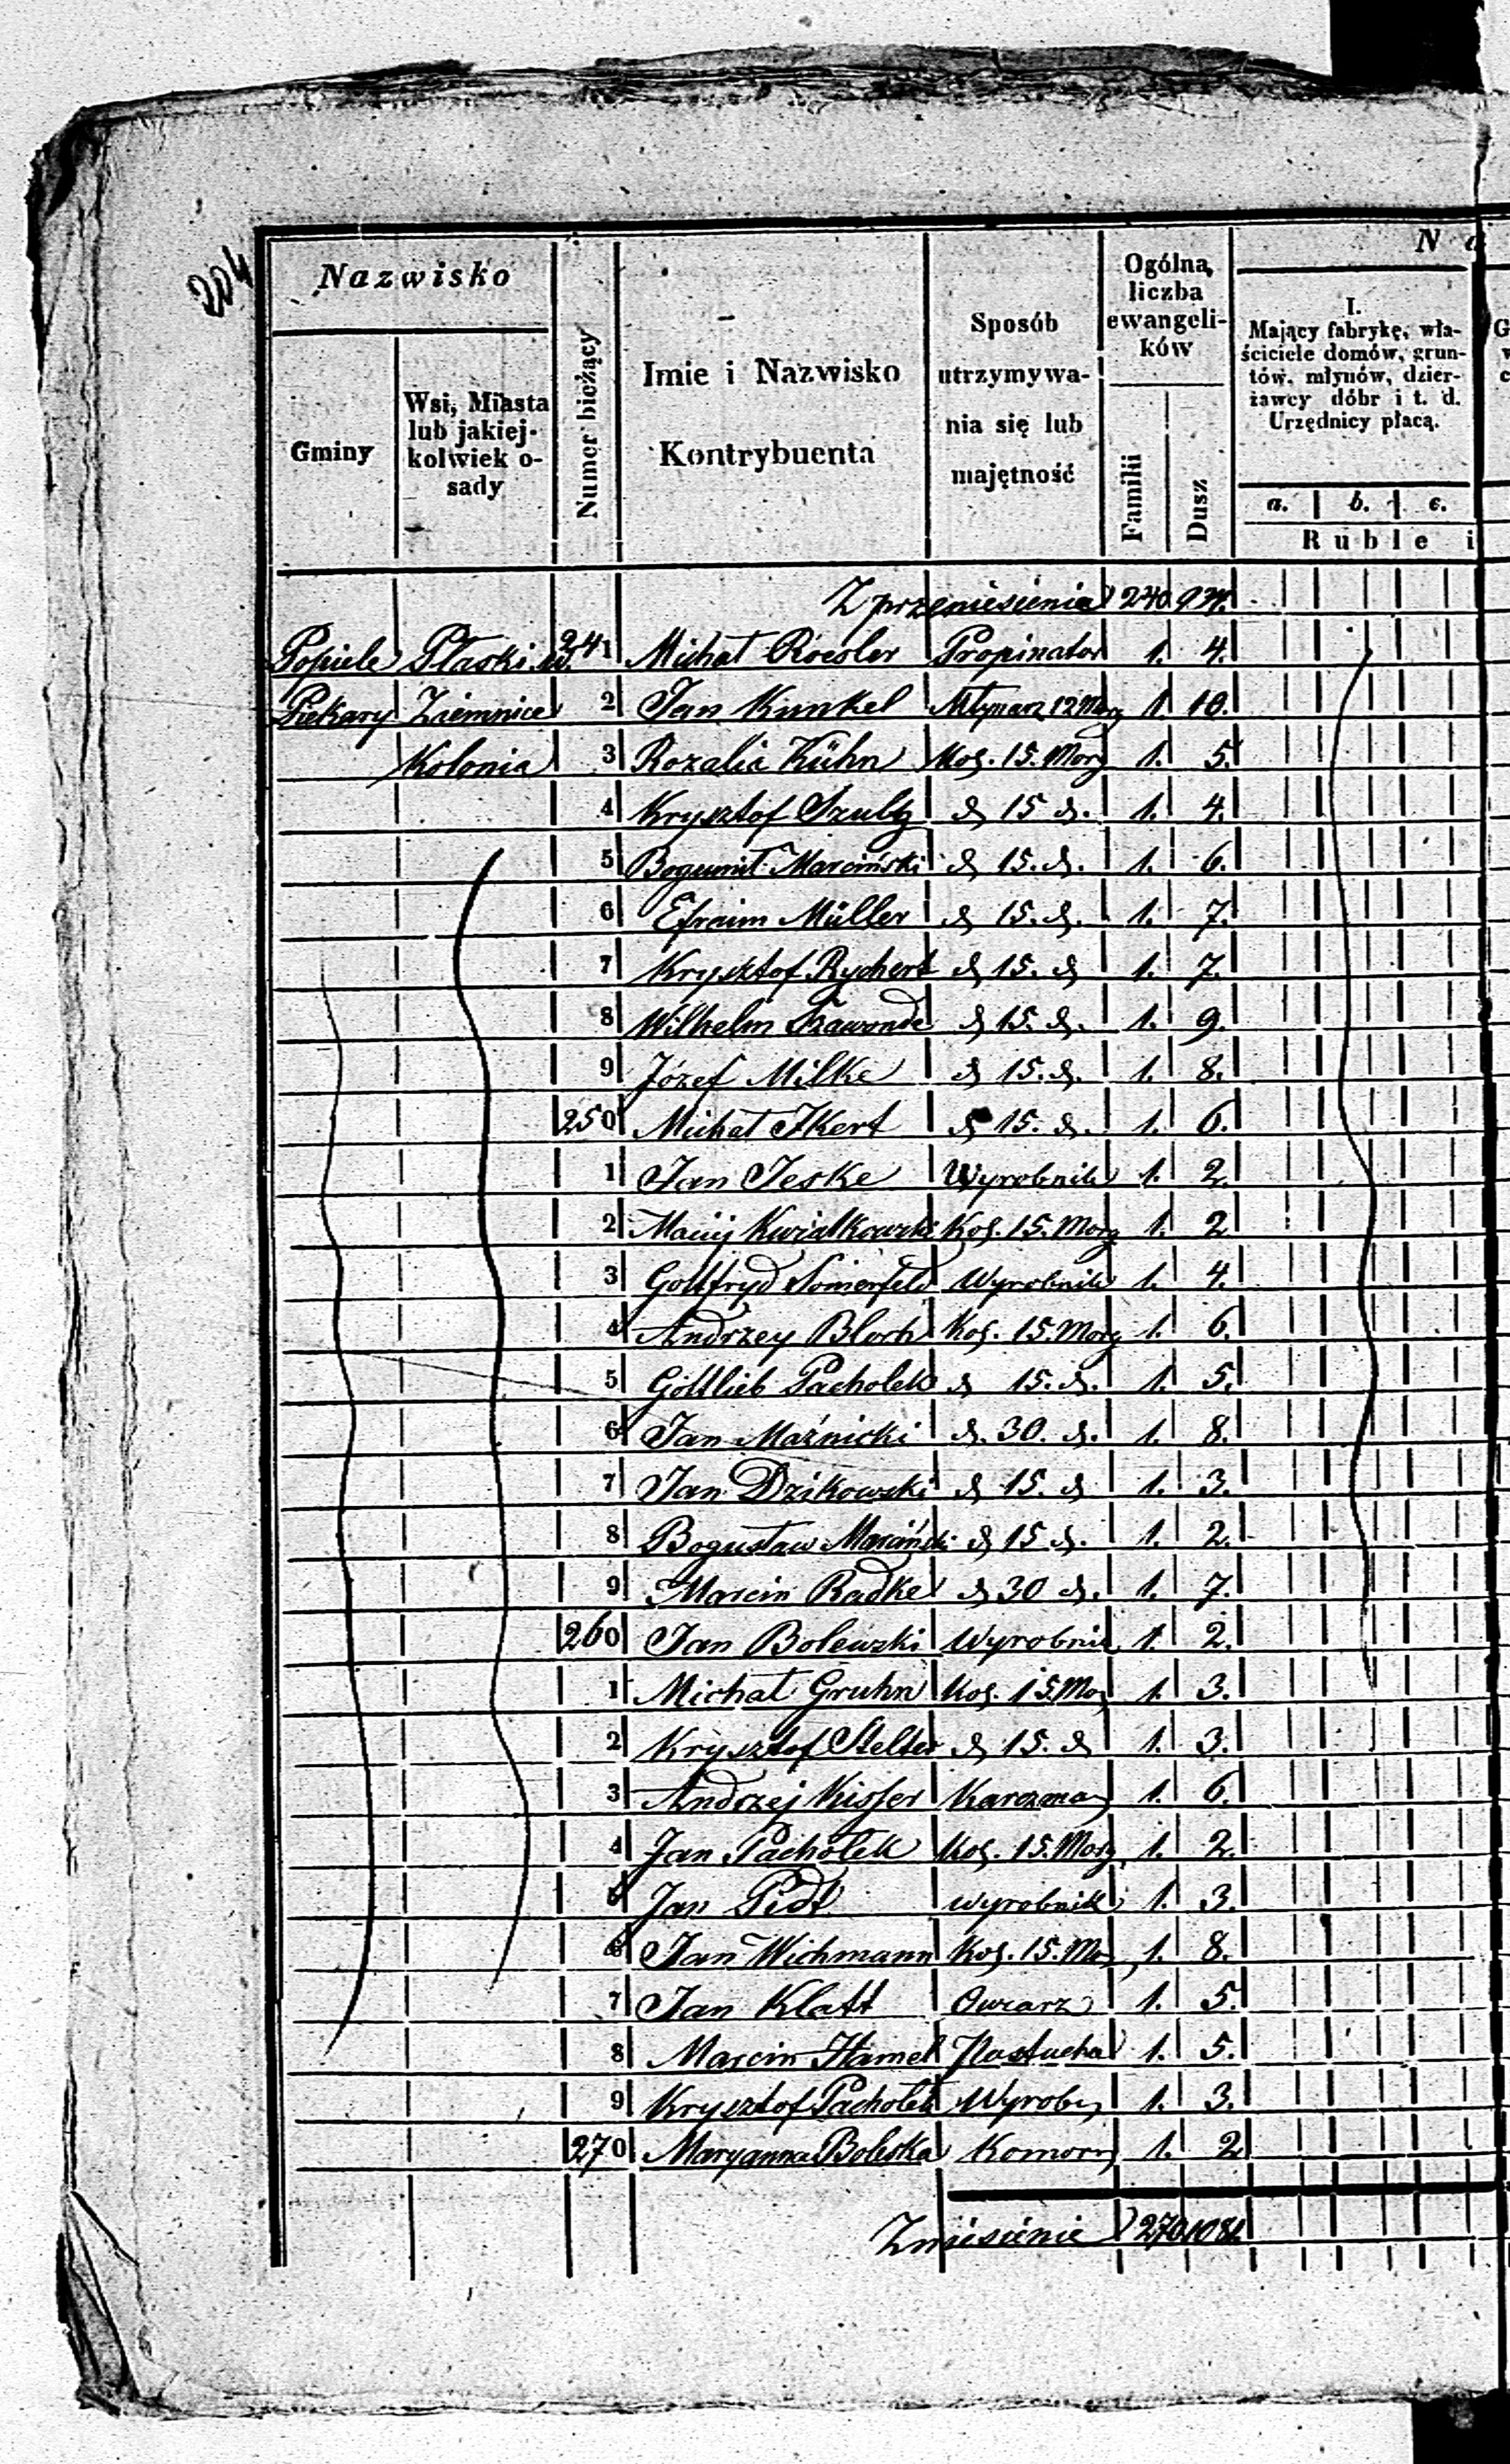 204
Nazwisko
Gminy
Wsi, Miasta lub jakiej-kolwiek o-sady
Numer bieżący
Imie i Nazwisko Kontrybuenta
Sposób utrzymywa-nia się lub majętność
Ogólna liczba ewangeli-ków
Familii
Dusz
I.
Mający fabrykę, wła-
ściciele domów, grun-
tów, młynów, dzier-
żawcy dóbr i t. d.
Urzędnicy płacą.
a. b. c.
Ruble i
Z przeniesienia 240
Popiele Płaski w. 241 Michał Roesler Propinator 1. 4.
Piekary Ziemnice 2 Jan Kunkel Młynarz 12 Morg 1. 10.
Kolonia 3 Rozalia Kühn Kol. 15. Morg 1. 5.
4 Krysztof Szultz d 15 d. 1. 4.
5 Bogumił Marciński d 15. d. 1. 6.
6 Efraim Müller d 15. d. 1. 7.
7 Krysztof Rychert d 15. d 1. 7.
8 Wilhelm d 15. d. 1. 9.
9 Józef Milke d 15. d. 1. 8.
250 Michał Ikert d 15. d. 1. 6.
1 Jan Jeske Wyrobnik 1. 2.
2 Maciej Kwiatkowski Kol. 15. Morg 1. 2
3 Gottfryd Somerfeld Wyrobnik 1. 4.
4 Andrzey Bloch Kol. 15. Morg 1. 6.
5 Gottlieb Pacholek d 15. d. 1. 5.
6 Jan Maźnicki d. 30. d. 1. 8.
7 Jan Dzikowski d 15. d 1. 3.
8 Bogusław Marciński d 15 d. 1. 2.
9 Marcin Radke d 30 d. 1. 7.
260 Jan Bolewski Wyrobnik 1. 2.
1 Michał Gruhn Kol. 15. Mo 1. 3.
2 Krysztof Stelter d 15. d 1. 3.
3 Andrzej Kisser Karczma 1. 6.
4 Jan Pachołek Kol. 15. Morg 1. 2.
5 Jan wyrobnik 1. 3.
6 Jan Wichmann Kol. 15. Mo 1. 8.
7 Jan Klatt Owczarz 1. 5.
8 Marcin Hamel Pastucha 1. 5.
9 Krysztof Pachołek Wyrobn 1. 3.
270 Maryanna Boleska Komorn 1. 2
Zniesienie 270 1081.